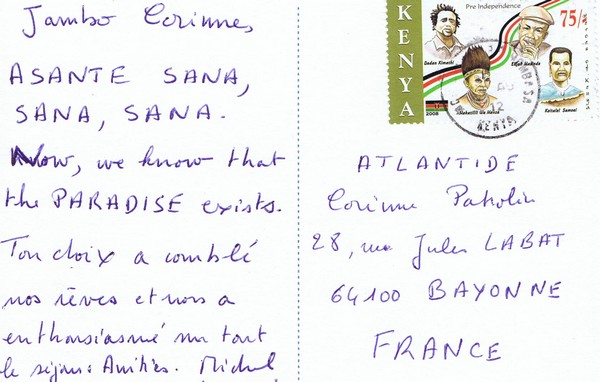 Jambo Corinne,
ASANTE SANA,
SANA, SANA.
Now, we know that
the PARADISE exists.
Ton choix a comblé
nos rêves et nous a
enthousiasmé sur tout
le séjour. Amitiés. Michel
KENYA
Pre Independence
75/-
Dedan Kimathi
Elijah Masinde
Mekatilili Wa Menza
Koitalel Samoei
2008
MOMBASA
KENYA
ATLANTIDE
Corinne
28, rue Jules LABAT
64100 BAYONNE
FRANCE